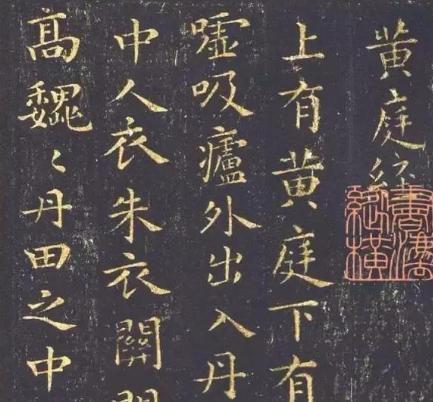 黃庭經
上有黃庭下有
噓吸廬外出入丹
中人衣朱衣關
高魏〻丹田之中
書法縱橫